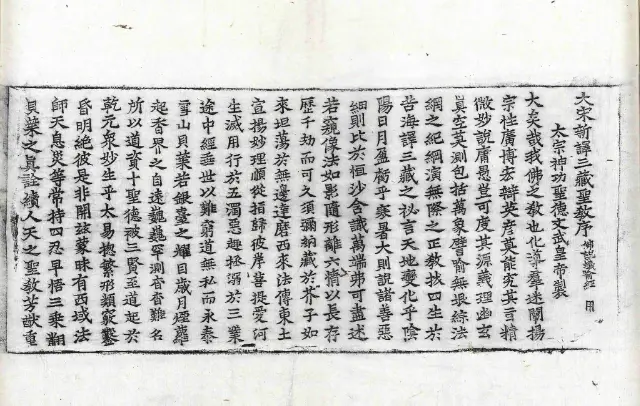 大宋新譯三藏聖教序
太宗神功聖德文武皇帝製
大矣哉我佛之教也化導群迷闡揚
宗性廣博宏辯英彦莫能究其旨精
微妙說庸愚豈可度其源義理幽玄
真空莫測包括萬象譬喻無垠綜法
網之紀綱演無際之正教拔四生於
苦海譯三藏之祕言天地變化乎陰
陽日月盈虧乎寒暑大則說諸善惡
細則比於恒沙含識萬端弗可盡述
若窺像法如影隨形離六情以長存
歷千劫而可久須彌納藏於芥子如
來坦蕩於無邊達磨西來法傳東土
宣揚妙理順從指歸彼岸菩提愛河
生滅用行於五濁惡趣拯溺於三業
途中經垂世以難窮道無私而永泰
雪山貝葉若銀臺之耀目歲月煙蘿
起香界之自遠巍巍罕測杳杳難名
所以道資十聖德被三賢至道起於
乾元衆妙生乎太易揔繁形類竅鑿
昏明絶彼是非開玆蒙昧有西域法
師天息災等常持四忍早悟三乘翻
貝葉之真詮續人天之聖教芳猷重